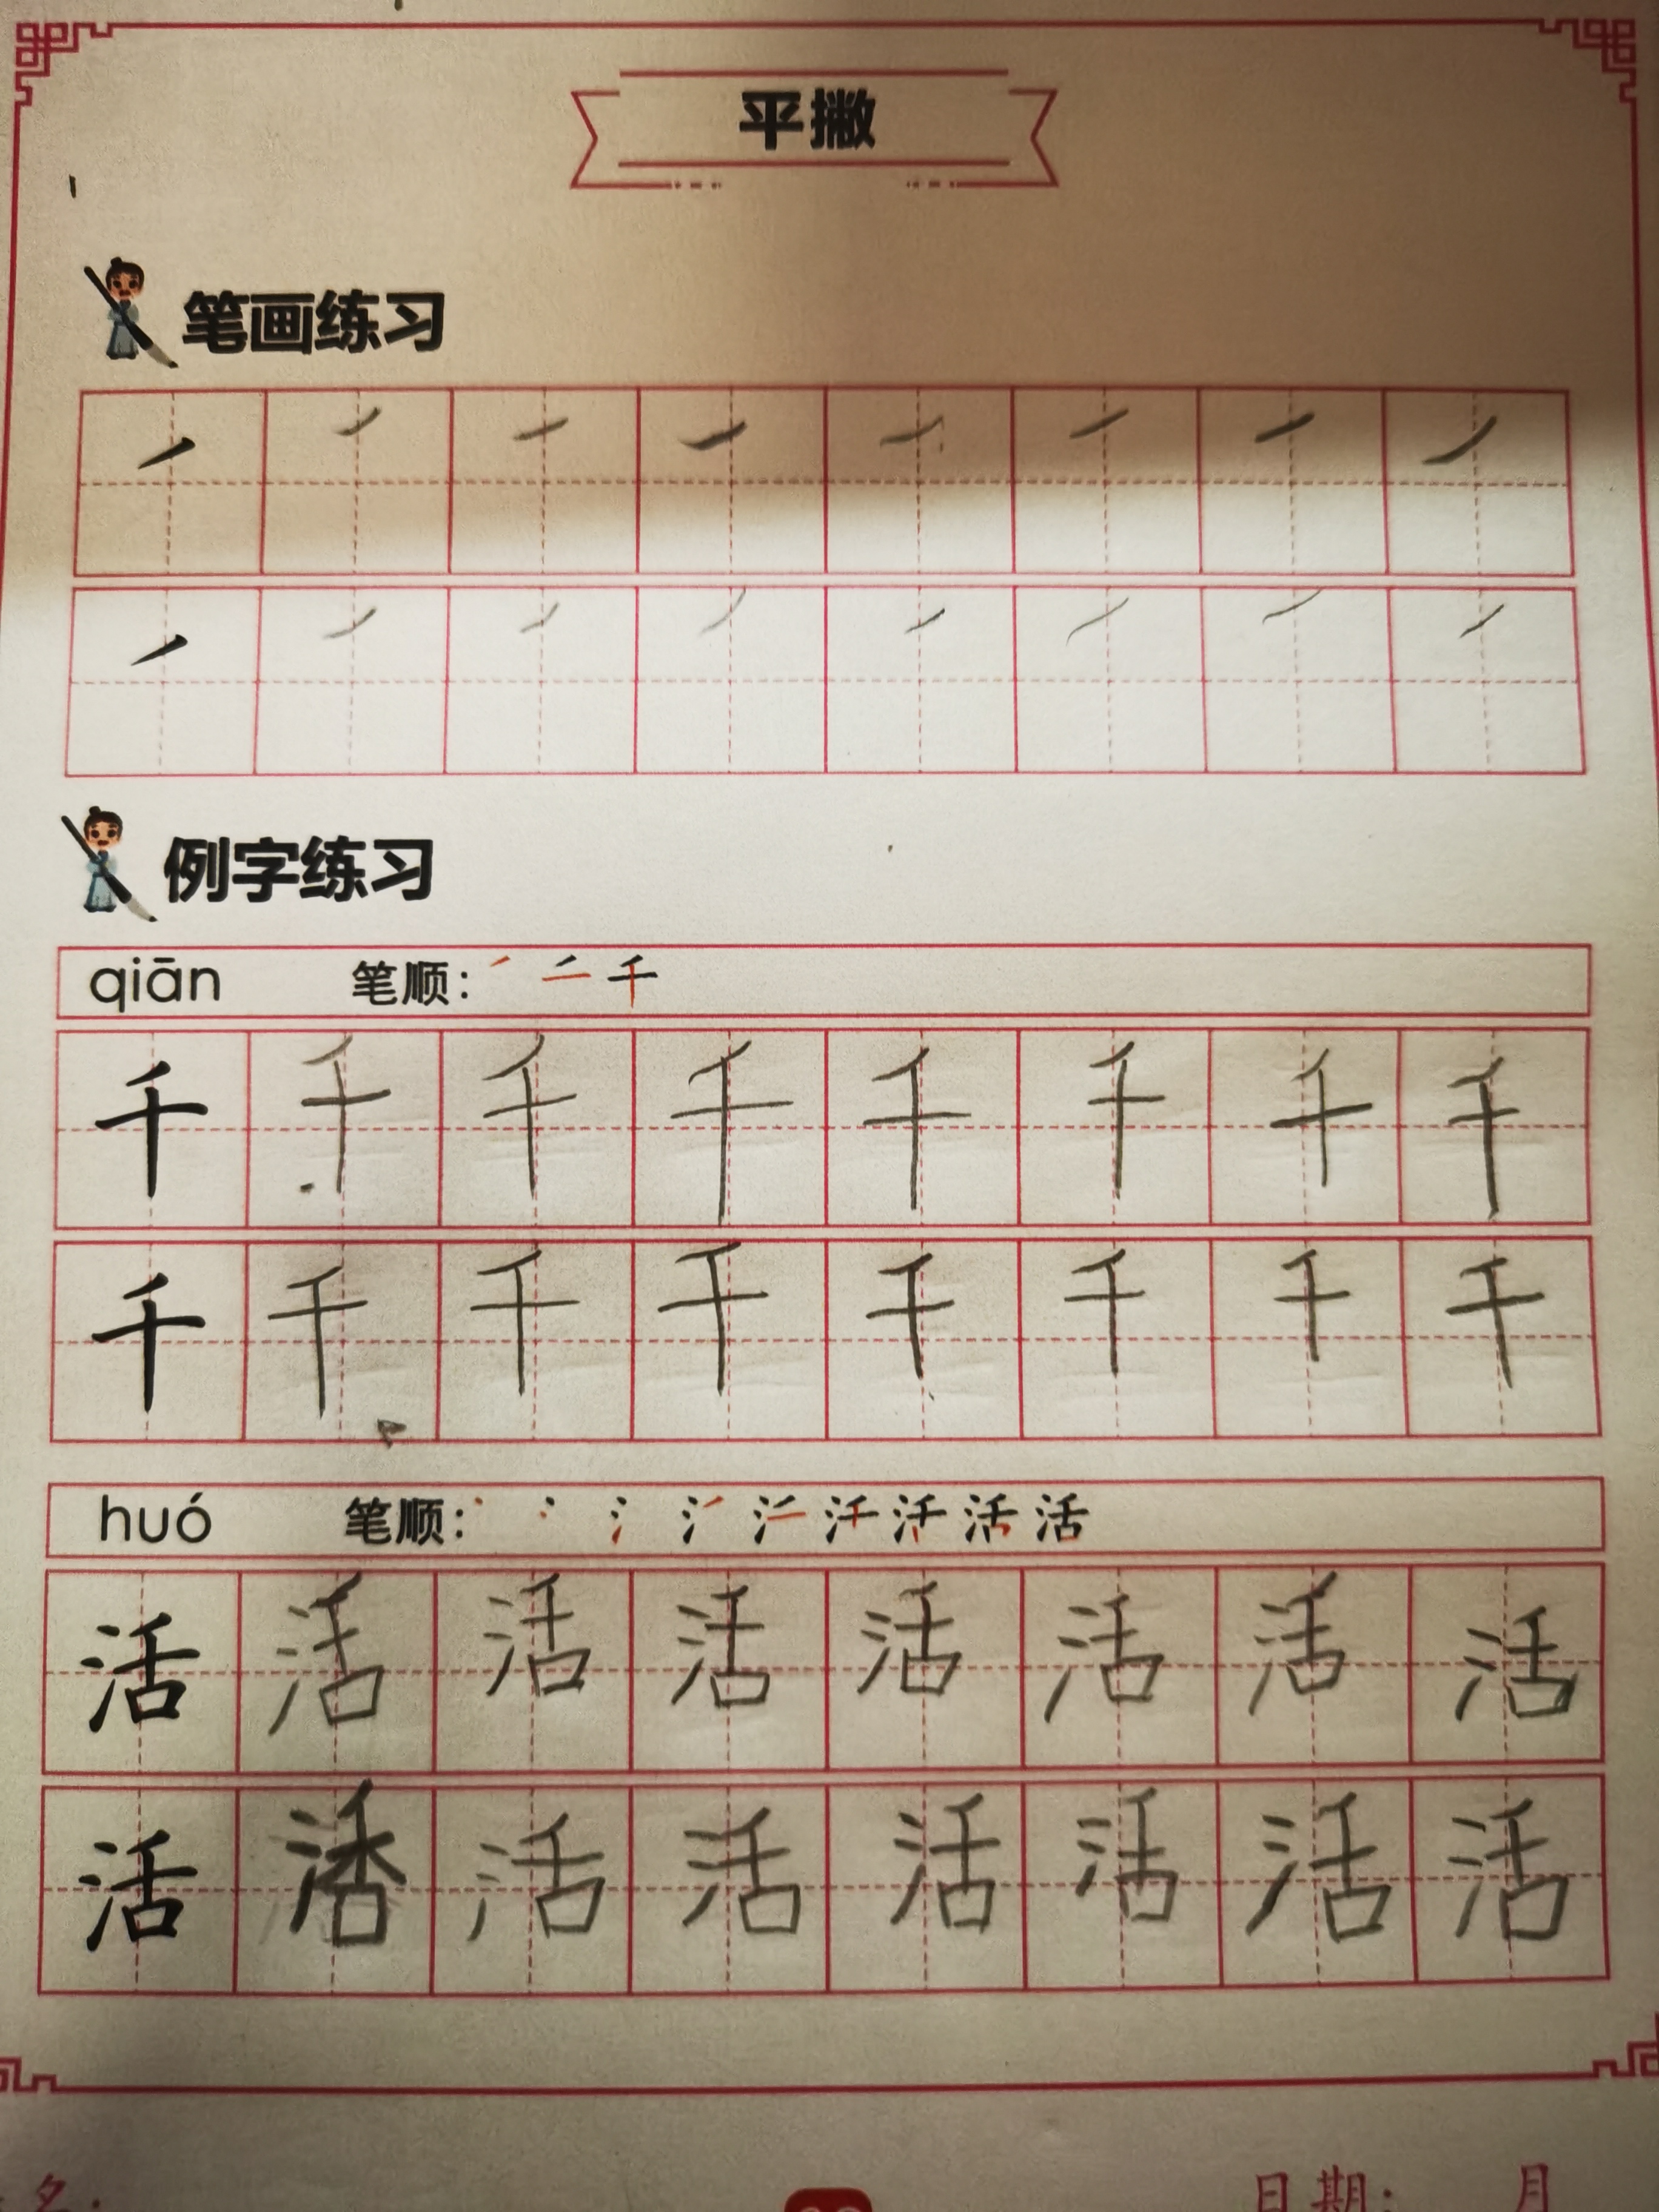 平撇
笔画练习
㇒ ㇒ ㇒ ㇒ ㇒ ㇒ ㇒ ㇒
㇒ ㇒ ㇒ ㇒ ㇒ ㇒ ㇒ ㇒
例字练习
qiān 笔顺: 千
千 千 千 千 千 千 千 千
千 千 千 千 千 千 千 千
huó 笔顺: 活
活 活 活 活 活 活 活 活
活 活 活 活 活 活 活 活
名: 日期: 月